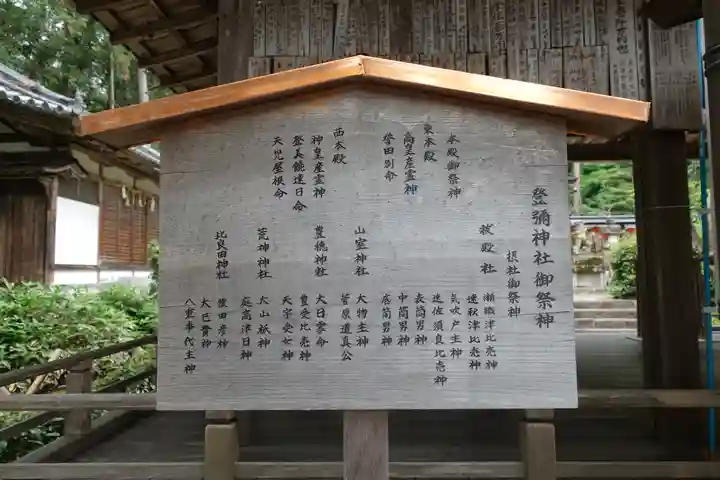 登彌神社御祭神
本殿御祭神
東本殿
高皇産霊神
誉田別命
西本殿
神皇産霊神
登美饒速日命
天児屋根命
摂社御祭神
祓殿社
瀬織津比売神
速秋津比売神
気吹戸主神
速佐須良比売神
表筒男神
中筒男神
底筒男神
山室神社
大物主神
菅原道真公
豊穂神社
大日霎命
豊受比売神
天宇受女神
荒神神社
大山祇神
庭高津日神
比良田神社
猿田彦神
大己貴神
八重事代主神